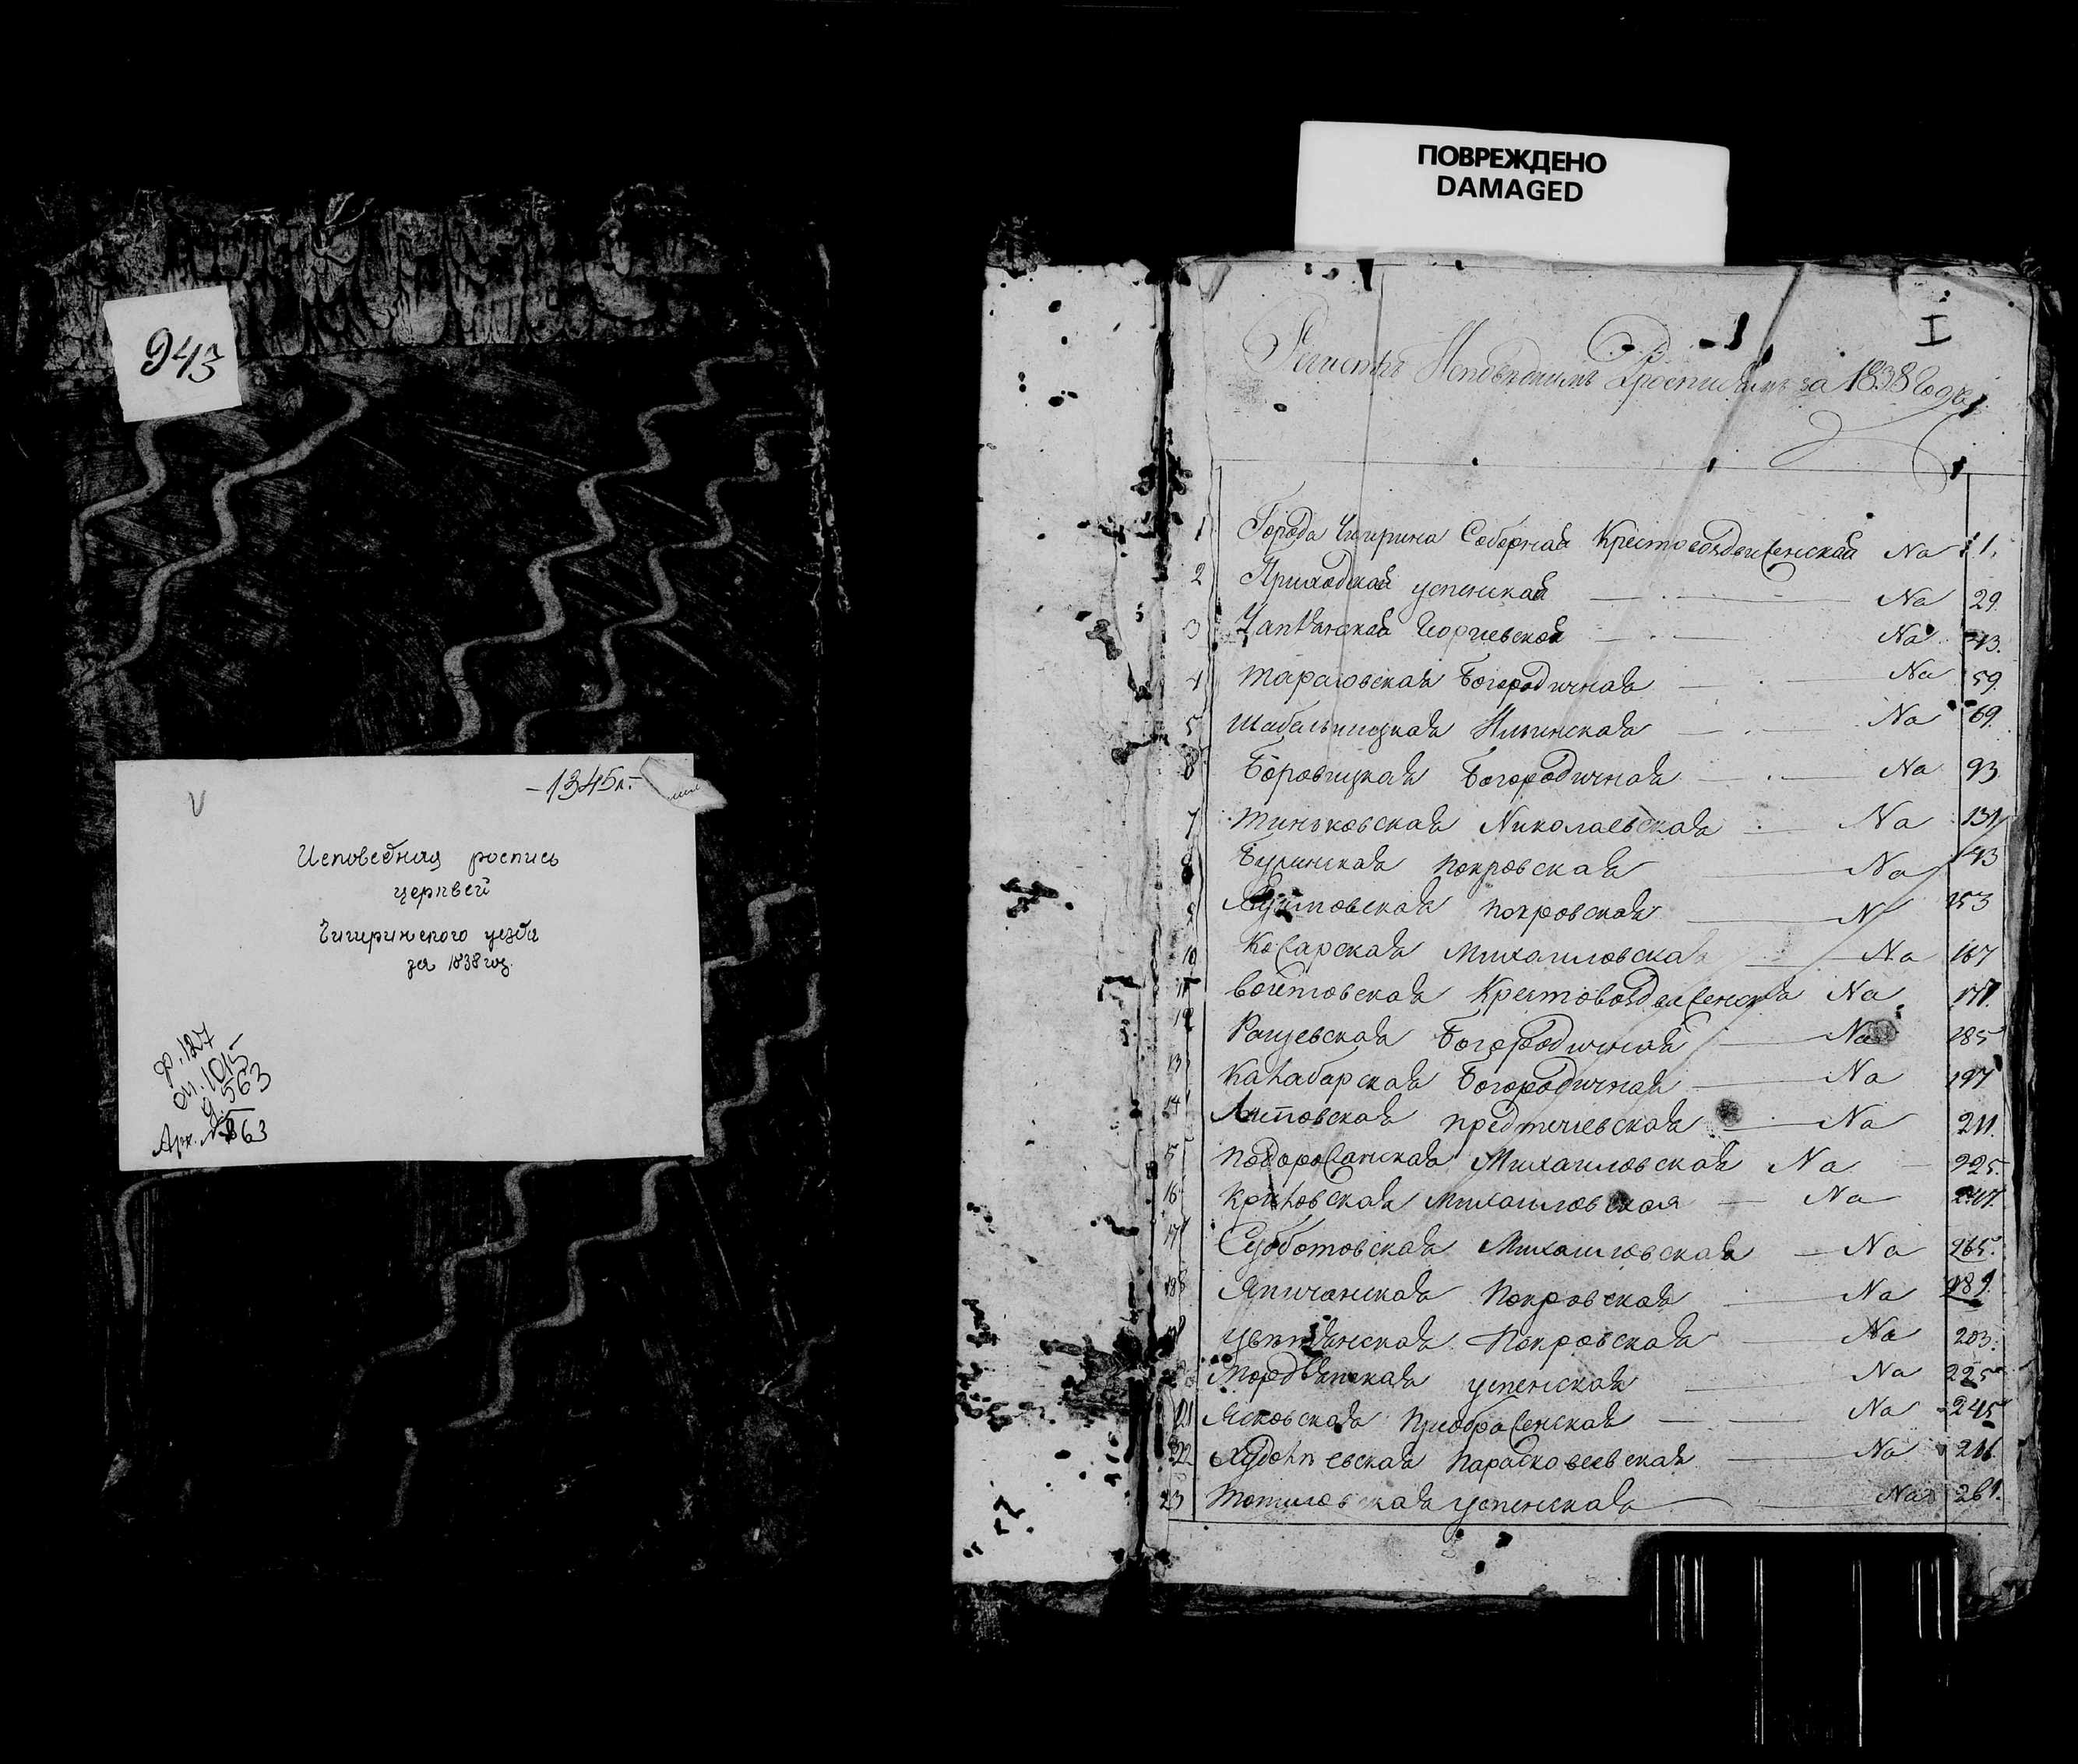 943
-1345л.-
Исповедная роспись
церквей
Чигиринского уезда
за 1838 год.
ф. 127
оп. 1015
д. 563
Арх. № 563
ПОВРЕЖДЕНО
DAMAGED
I
Регистръ Исповѣднымъ Росписямъ за 1838 годъ
1 Города Чигирина Соборная Крестовоздвиженская На 1.
2 Приходская успенская На 29.
3 Георгіевская На 43.
4 Тарасовская Богородичная На 59.
5 Шабельницкая Ильинская На 69.
6 Боровицкая Богородичная На 93
7 Тиньковская Николаевская На 131
8 Бужинская покровская На 143
9 покровская На 153
10 Кожарская Михаиловская На 167
11 Войтовская Крестовоздвиженская На 177.
12 Рацевская Богородичная На 185
13 Калабарская Богородичная На 197
14 предтечевская На 211.
15 подорожанская Михаиловская На 225.
16 Крыловская Михаиловская На 247.
17 Субботовская Михаиловская На 265.
18 Япичанская Покровская На 189.
19 Цвѣтнянская Покровская На 203.
20 успенская На 225
21 Ясковская Преображенская На 245
22 Худолѣевская Параскоевевская На
23 успенская На 261.